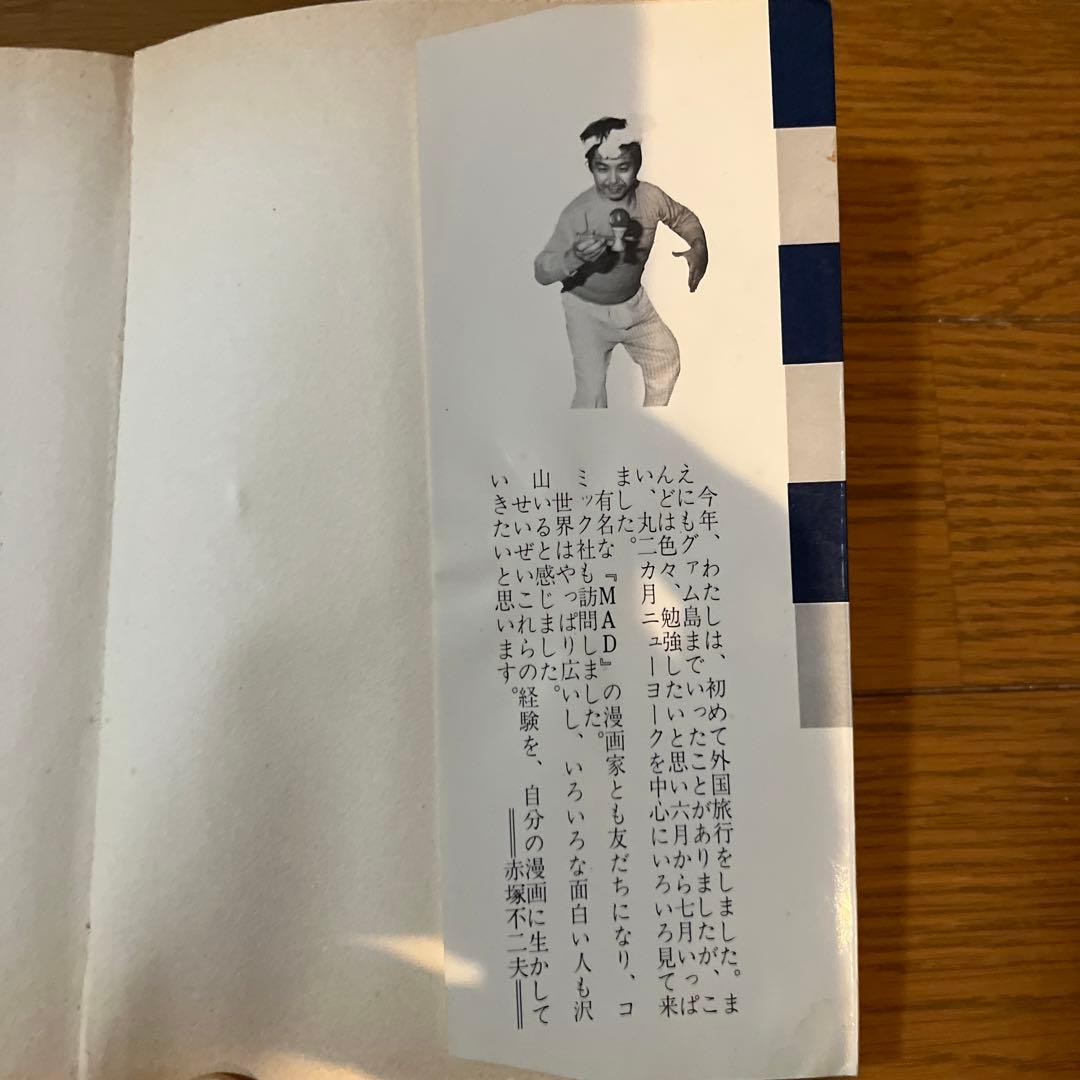 今年、わたしは、初めて外国旅行をしました。ま
えにもグァム島までいったことがありましたが、こ
んどは色々、勉強したいと思い六月から七月いっぱ
い、丸二カ月ニューヨークを中心にいろいろ見て来
ました。
有名な『MAD』の漫画家とも友だちになり、コ
ミック社も訪問しました。
世界はやっぱり広いし、いろいろな面白い人も沢
山いると感じました。
せいぜいこれらの経験を、自分の漫画に生かして
いきたいと思います。
══赤塚不二夫══